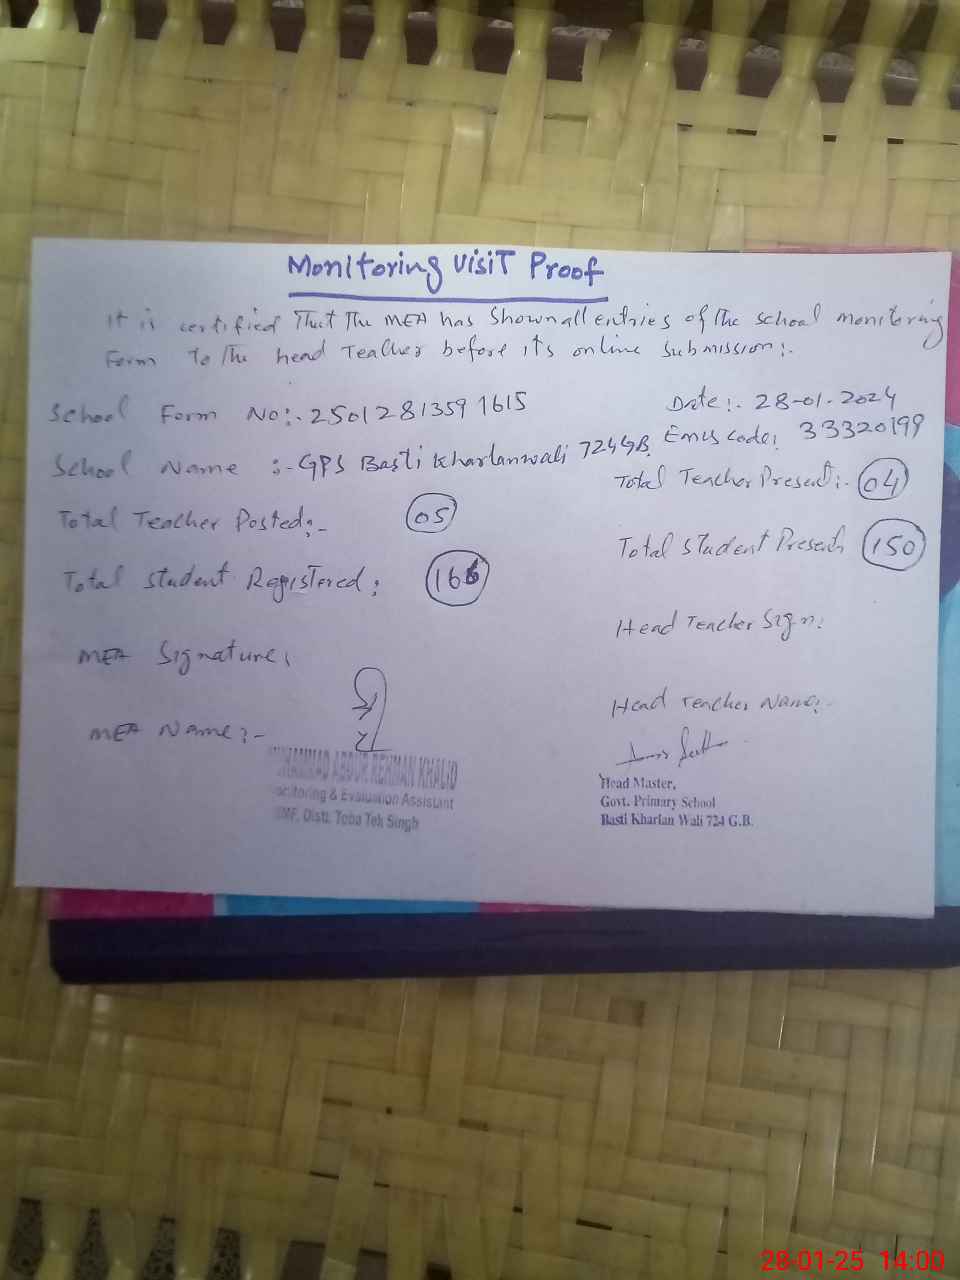 Monitoring Visit Proof
It is certified That The MEA has Shown all entries of The School monitoring
Form To The head Teacher before its online Submission:.
School Form No:. 25012813591615
Date:. 28-01-2024
School Name :- GPS Basti Kharlanwali 724GB
Emis Code: 33320199
Total Teacher Posted:- 05
Total Teacher Present:- 04
Total Student Registered: 166
Total Student Present: 150
MEA Signature:
Head Teacher Sign:
MEA Name:-
Head Teacher Name:-
MUHAMMAD ABDUR REHMAN KHALID
Monitoring & Evaluation Assistant
Distt. Toba Tek Singh
Head Master,
Govt. Primary School
Basti Kharlan Wali 724 G.B.
28-01-25 14:00